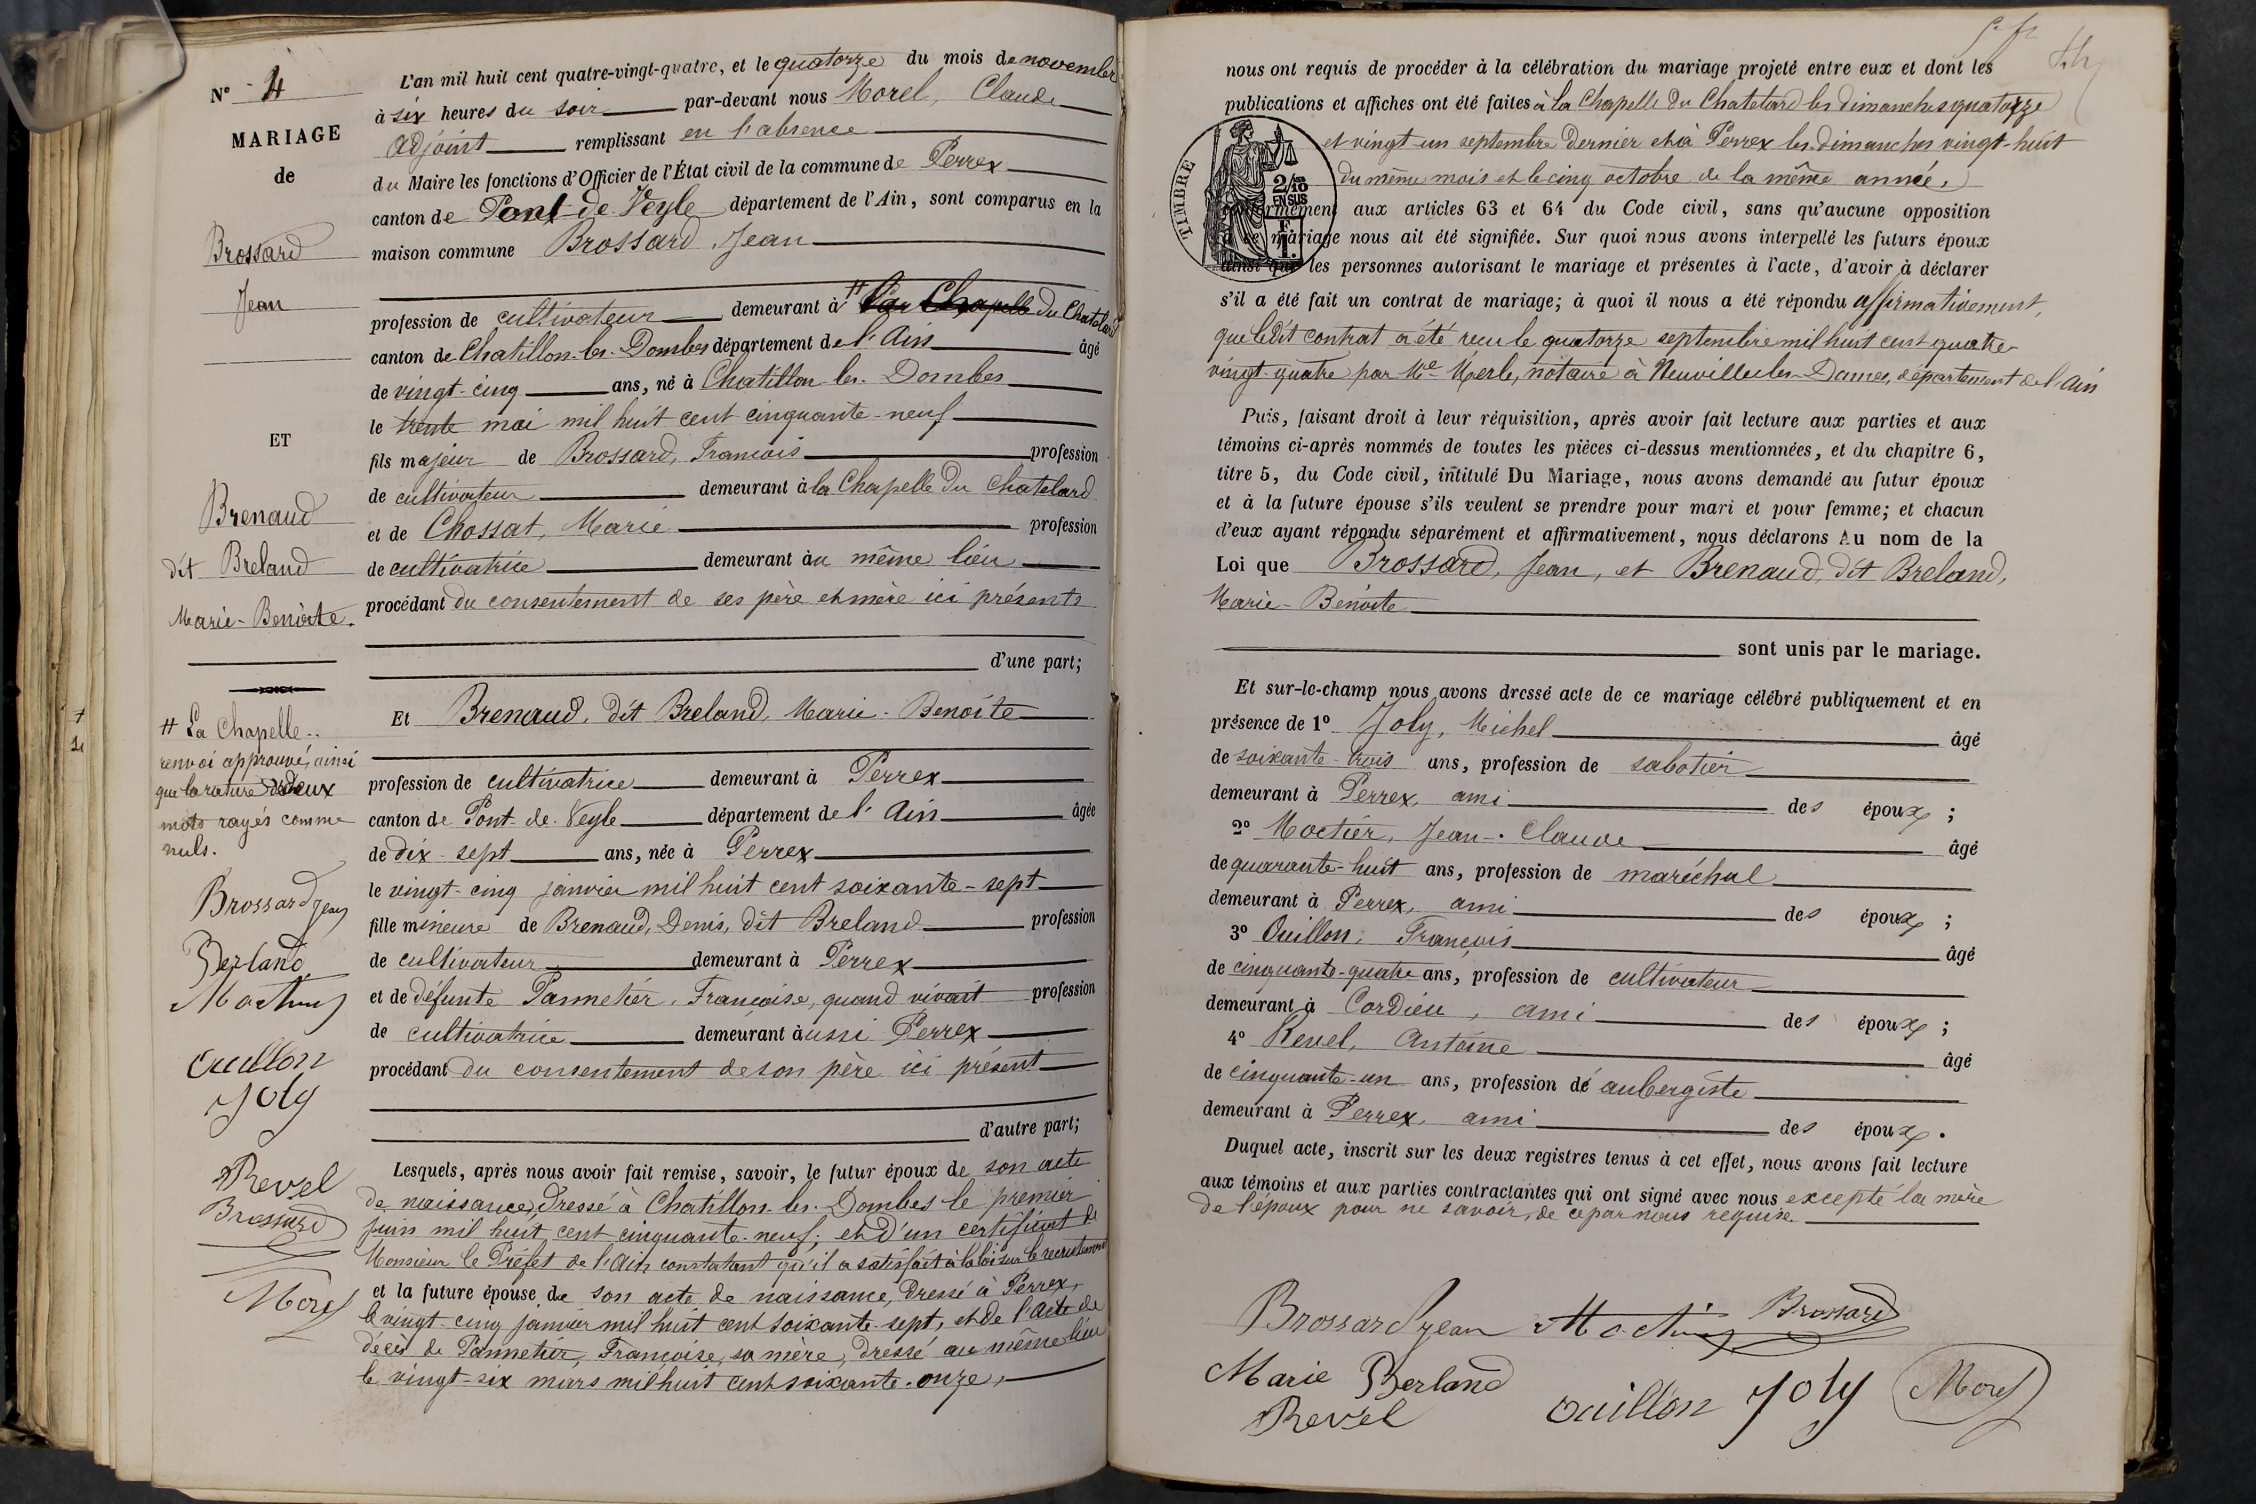 N° 4
MARIAGE
de
Brossard
Jean
ET
Brenaud
dit Breland
Marie-Benoîte.
# La Chapelle..
renvoi approuvé, ainsi
que la rature de deux
mots rayés comme
nuls.
Brossard Jean
Berland
Moctier
Ouillon
Joly
Revel
Brossard
Morel
L'an mil huit cent quatre-vingt-quatre, et le quatorze du mois de novembre
à six heures du soir par-devant nous Morel, Claude
adjoint remplissant en l'absence
du Maire les fonctions d'Officier de l'État civil de la commune de Perrex
canton de Pont-de-Veyle département de l'Ain, sont comparus en la
maison commune Brossard, Jean
profession de cultivateur demeurant à # La Chapelle du Chatelard
canton de Chatillon-les-Dombes département de l'Ain âgé
de vingt-cinq ans, né à Chatillon-les-Dombes
le trente mai mil huit cent cinquante-neuf
fils majeur de Brossard, François profession
de cultivateur demeurant à la Chapelle du Chatelard
et de Chossat, Marie profession
de cultivatrice demeurant au même lieu
procédant du consentement de ses père et mère ici présents
d'une part;
Et Brenaud, dit Breland, Marie-Benoîte
profession de cultivatrice demeurant à Perrex
canton de Pont-de-Veyle département de l'Ain âgée
de dix-sept ans, née à Perrex
le vingt-cinq janvier mil huit cent soixante-sept
fille mineure de Brenaud, Denis, dit Breland profession
de cultivateur demeurant à Perrex
et de défunte Pannetier, Françoise, quand vivait profession
de cultivatrice demeurant aussi Perrex
procédant du consentement de son père ici présent
d'autre part;
Lesquels, après nous avoir fait remise, savoir, le futur époux de son acte
de naissance, dressé à Chatillon-les-Dombes le premier
juin mil huit cent cinquante-neuf; et d'un certificat de
Monsieur le Préfet de l'Ain constatant qu'il a satisfait à la loi sur le recrutement
et la future épouse de son acte de naissance, dressé à Perrex,
le vingt-cinq janvier mil huit cent soixante-sept, et de l'acte de
décès de Pannetier, Françoise, sa mère, dressé au même lieu
le vingt-six mars mil huit cent soixante-onze,
nous ont requis de procéder à la célébration du mariage projeté entre eux et dont les
publications et affiches ont été faites à la Chapelle du Chatelard les dimanches quatorze
et vingt-un septembre dernier et à Perrex les dimanches vingt-huit
du même mois et le cinq octobre de la même année,
TIMBRE
2/10 EN SUS
1 F.
conformément aux articles 63 et 64 du Code civil, sans qu'aucune opposition
à ce mariage nous ait été signifiée. Sur quoi nous avons interpellé les futurs époux
ainsi que les personnes autorisant le mariage et présentes à l'acte, d'avoir à déclarer
s'il a été fait un contrat de mariage; à quoi il nous a été répondu affirmativement,
que ledit contrat a été reçu le quatorze septembre mil huit cent quatre-
vingt-quatre par Me Merle, notaire à Neuville-les-Dames, département de l'Ain
Puis, faisant droit à leur réquisition, après avoir fait lecture aux parties et aux
témoins ci-après nommés de toutes les pièces ci-dessus mentionnées, et du chapitre 6,
titre 5, du Code civil, intitulé Du Mariage, nous avons demandé au futur époux
et à la future épouse s'ils veulent se prendre pour mari et pour femme; et chacun
d'eux ayant répondu séparément et affirmativement, nous déclarons Au nom de la
Loi que Brossard, Jean, et Brenaud, dit Breland,
Marie-Benoite
sont unis par le mariage.
Et sur-le-champ nous avons dressé acte de ce mariage célébré publiquement et en
présence de 1° Joly, Michel âgé
de soixante-trois ans, profession de sabotier
demeurant à Perrex, ami des époux;
2° Moctier, Jean-Claude âgé
de quarante-huit ans, profession de maréchal
demeurant à Perrex, ami des époux;
3° Ouillon, François âgé
de cinquante-quatre ans, profession de cultivateur
demeurant à Cordieu, ami des époux;
4° Revel, Antoine âgé
de cinquante-un ans, profession de aubergiste
demeurant à Perrex, ami des époux.
Duquel acte, inscrit sur les deux registres tenus à cet effet, nous avons fait lecture
aux témoins et aux parties contractantes qui ont signé avec nous excepté la mère
de l'époux pour ne savoir, de ce par nous requise.
Brossard Jean Moctier Brossard
Marie Berland
Revel Ouillon Joly Morel